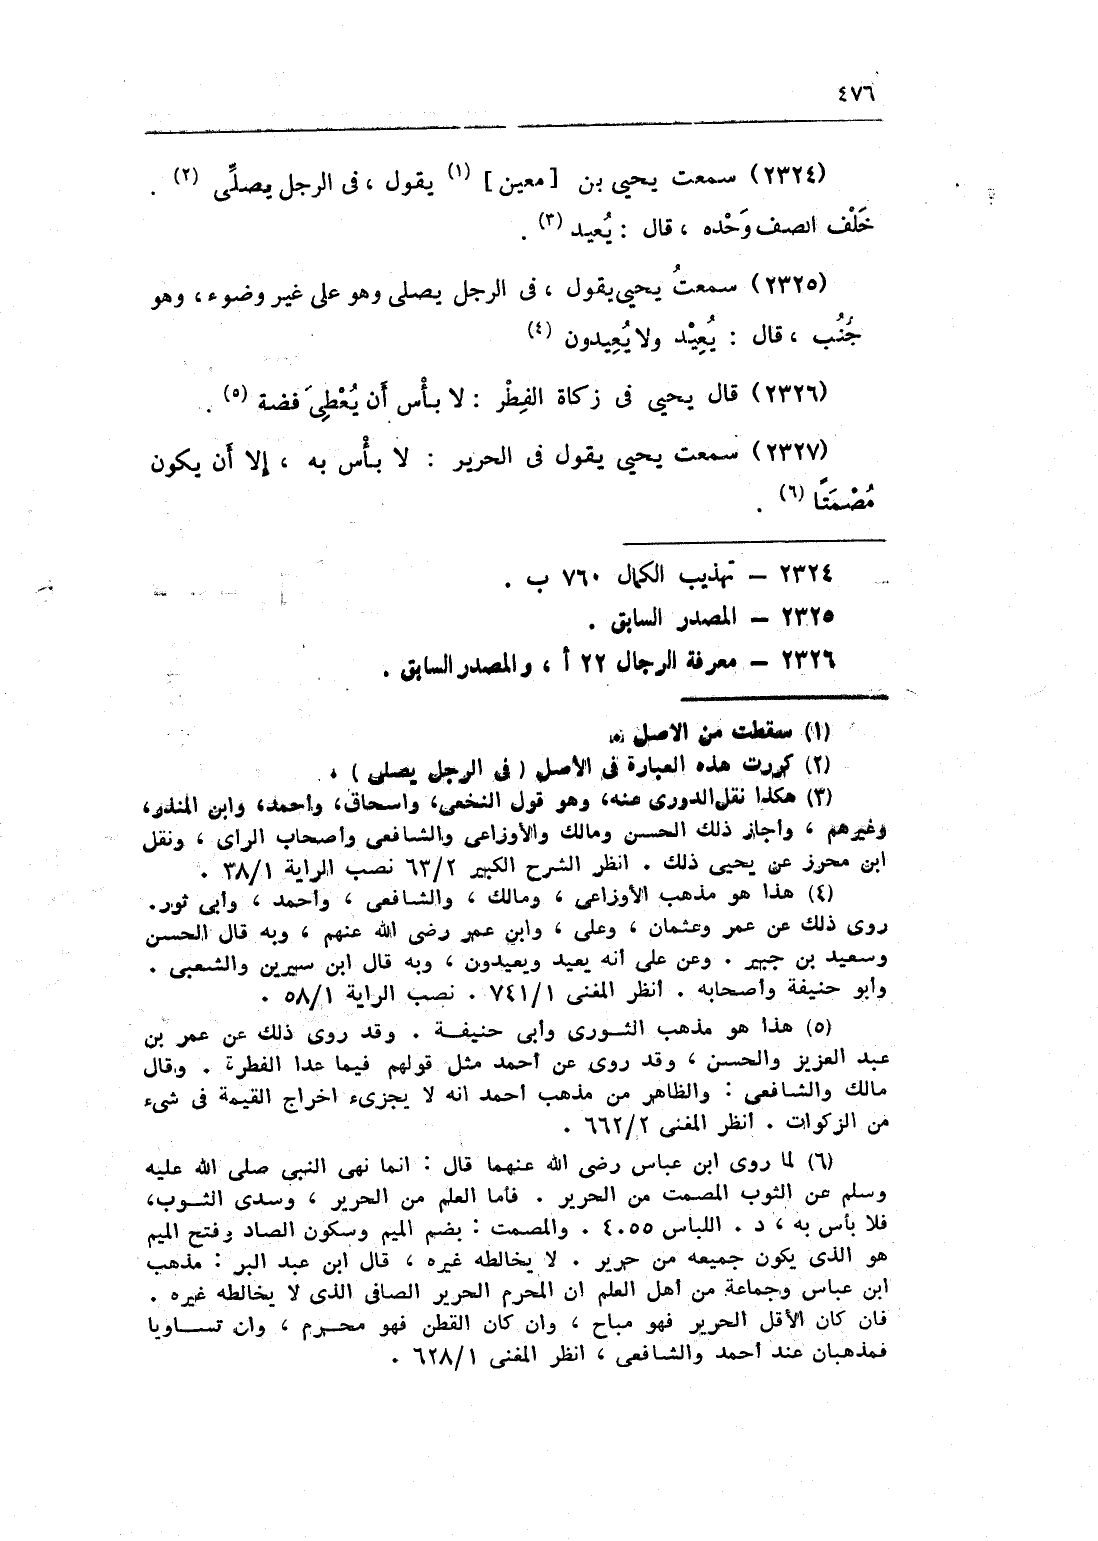 ٤٧٦
(٢٣٢٤) سمعت يحيى بن [معين] (١) يقول ، فى الرجل يصلِّى (٢) .
خَلْف الصف وَحْده ، قال : يُعيد (٣) .
(٢٣٢٥) سمعتُ يحيى يقول ، فى الرجل يصلى وهو على غير وضوء ، وهو
جُنُب ، قال : يُعِيْد ولا يُعِيدون (٤)
(٢٣٢٦) قال يحيى فى زكاة الفِطْر : لا بأْس أَن يُعْطِىَ فضة (٥) .
(٢٣٢٧) سمعت يحيى يقول فى الحرير : لا بأْس به ، إلا أَن يكون
مُصْمَتًا (٦) .
٢٣٢٤ – تهذيب الكمال ٧٦٠ ب .
٢٣٢٥ – المصدر السابق .
٢٣٢٦ – معرفة الرجال ٢٢ أ ، والمصدر السابق .
(١) سقطت من الاصل
(٢) كررت هذه العبارة فى الأصل ( فى الرجل يصلى ) .
(٣) هكذا نقل الدورى عنه، وهو قول النخعى، واسحاق، وأحمد، وابن المنذر،
وغيرهم ، وأجاز ذلك الحسن ومالك والأوزاعى والشافعى وأصحاب الراى ، ونقل
ابن محرز عن يحيى ذلك . انظر الشرح الكبير ٦٣/٢ نصب الراية ٣٨/١ .
(٤) هذا هو مذهب الأوزاعى ، ومالك ، والشافعى ، وأحمد ، وأبى ثور.
روى ذلك عن عمر وعثمان ، وعلى ، وابن عمر رضى الله عنهم ، وبه قال الحسن
وسعيد بن جبير . وعن على أنه يعيد ويعيدون ، وبه قال ابن سيرين والشعبى .
وأبو حنيفة وأصحابه . أنظر المغنى ٧٤١/١ . نصب الراية ٥٨/١ .
(٥) هذا هو مذهب الثورى وأبى حنيفة . وقد روى ذلك عن عمر بن
عبد العزيز والحسن ، وقد روى عن أحمد مثل قولهم فيما عدا الفطرة . وقال
مالك والشافعى : والظاهر من مذهب أحمد انه لا يجزىء اخراج القيمة فى شىء
من الزكوات . أنظر المغنى ٦٦٢/٢ .
(٦) لما روى ابن عباس رضى الله عنهما قال : انما نهى النبى صلى الله عليه
وسلم عن الثوب المصمت من الحرير . فأما العلم من الحرير ، وسدى الثوب،
فلا بأس به ، د . اللباس ٤٠٥٥ . والمصمت : بضم الميم وسكون الصاد وفتح الميم
هو الذى يكون جميعه من حرير . لا يخالطه غيره ، قال ابن عبد البر : مذهب
ابن عباس وجماعة من أهل العلم ان المحرم الحرير الصافى الذى لا يخالطه غيره .
فان كان الأقل الحرير فهو مباح ، وان كان القطن فهو محرم ، وان تساويا
فمذهبان عند أحمد والشافعى ، أنظر المغنى ٦٢٨/١ .